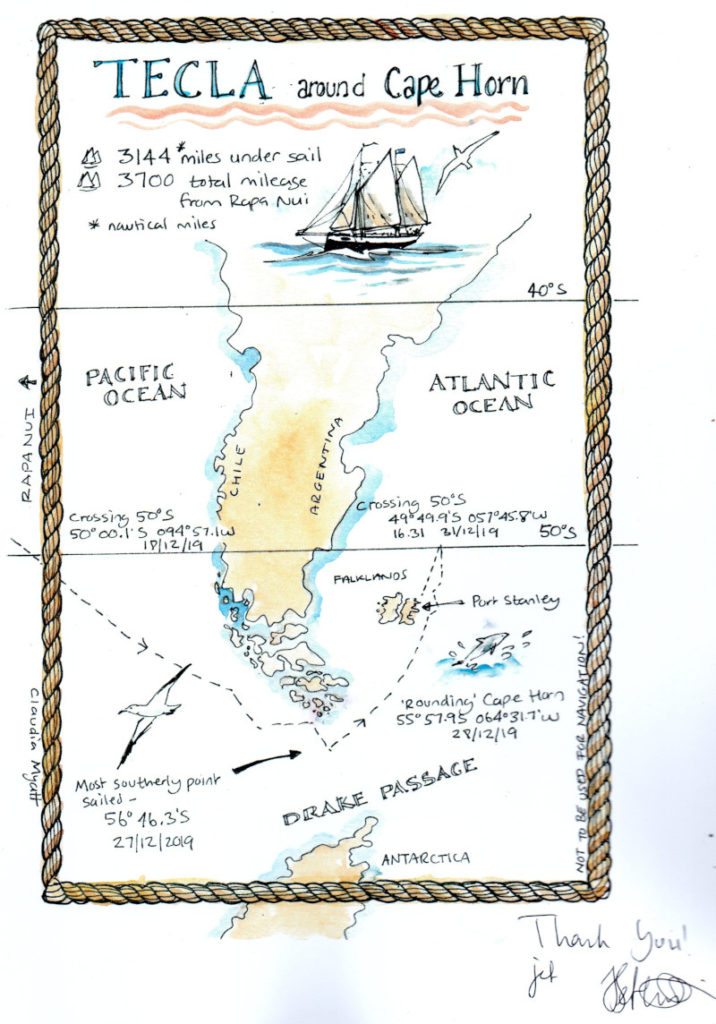 TECLA around Cape Horn
3144* miles under sail
3700 total mileage
from Rapa Nui
* nautical miles
40°S
PACIFIC
OCEAN
ATLANTIC
OCEAN
RAPA NUI
CHILE
ARGENTINA
Crossing 50°S
50°00.1'S 094°57.1W
18/12/19
Crossing 50°S
49°49.9'S 057°45.8'W
16.31 31/12/19
50°S
FALKLANDS
Port Stanley
'Rounding' Cape Horn
55°57.9S 064°31.7'W
28/12/19
Most southerly point
sailed -
56° 46.3'S
27/12/2019
DRAKE PASSAGE
ANTARCTICA
Claudia Myatt
NOT TO BE USED FOR NAVIGATION!
Thank You!
jet